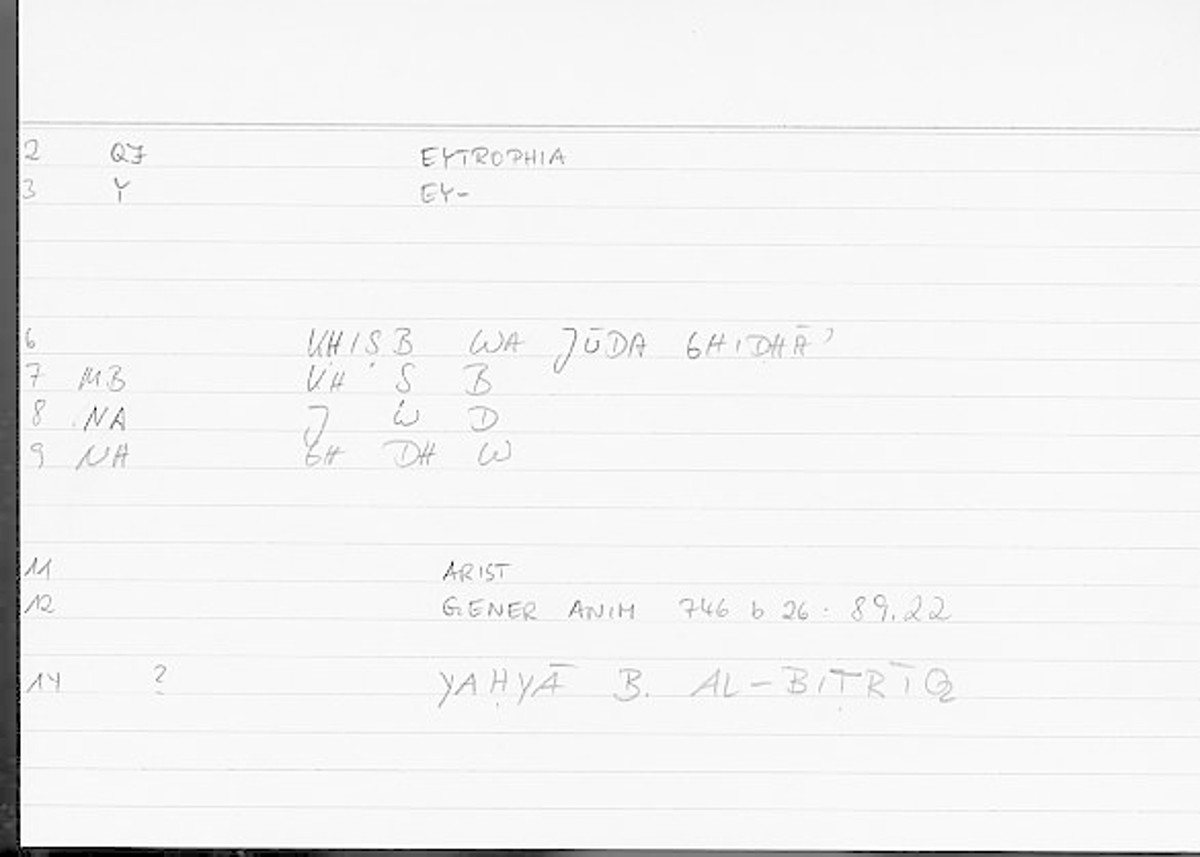 2 QF EYTROPHIA
3 Y EY-
6 KHIṢB WA JŪDA GHIDHĀʾ
7 MB KH Ṣ B
8 NA J W D
9 NH GH DH W
11 ARIST
12 GENER ANIM 746 b 26 : 89.22
14 ? YAḤYĀ B. AL-BIṬRĪQ